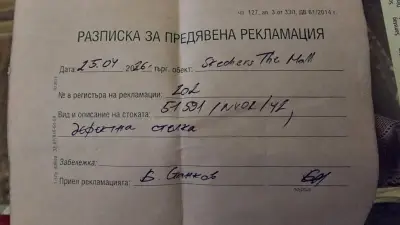 чл. 127, ал. 3 от ЗЗП, ДВ 61/2014 г.
РАЗПИСКА ЗА ПРЕДЯВЕНА РЕКЛАМАЦИЯ
Дата 25.04 2026 г. търг. обект: Skechers The Mall
№ в регистъра на рекламации: 202
Вид и описание на стоката: 51591/NVOR/42,
дефектна стелка
Забележка:
Приел рекламацията: Б. Станков